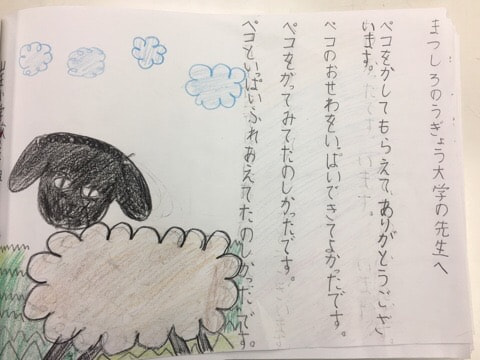 まつしろのうぎょう大学の先生へ
ペコをかしてもらえて、ありがとうござ
います。
ペコのおせわをいっぱいできてよかったです。
ペコをかってみてたのしかったです。
ペコといっぱいふれあえてたのしかったです。